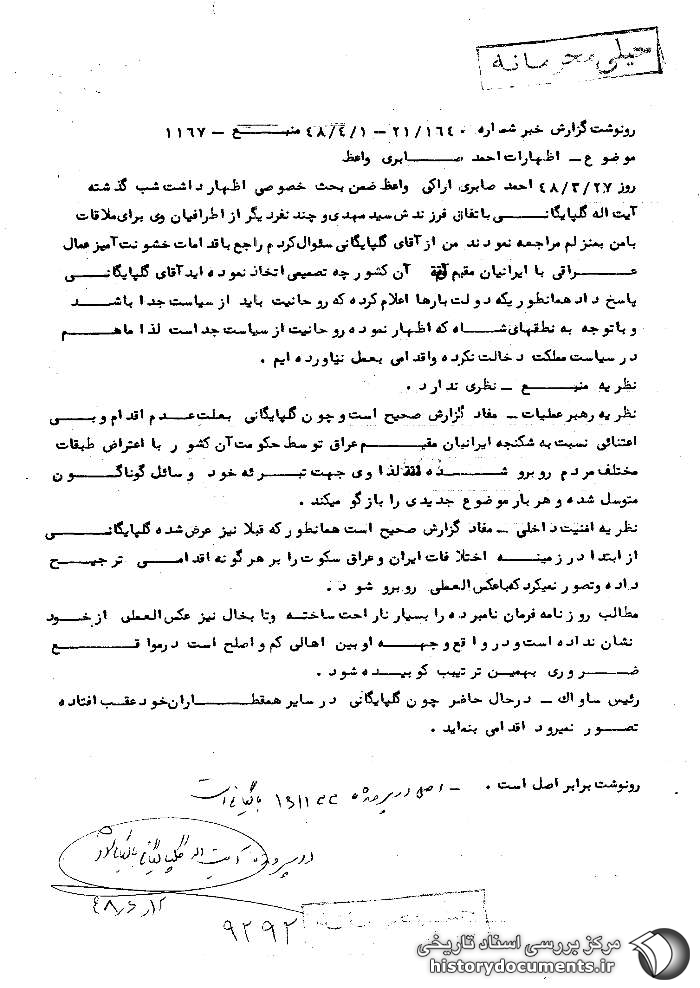 خیلی محرمانه
رونوشت گزارش خبر شماره ۲۱/۱۶۴۰ – ۴۸/٤/۱ منبع – ۱۱٦۷
موضوع – اظهارات احمد صابری واعظ
روز ۴۸/۳/۲۷ احمد صابری اراکی واعظ ضمن بحث خصوصی اظهار داشت شب گذشته
آیت اله گلپایگانی باتفاق فرزندش سید مهدی و چند نفر دیگر از اطرافیان وی برای ملاقات
بامن بمنزلم مراجعه نمودند من از آقای گلپایگانی سئوال کردم راجع باقدامات خشونت آمیز عمال
عراقی با ایرانیان مقیم آن کشور چه تصمیمی اتخاذ نموده اید آقای گلپایگانی
پاسخ داد همانطوریکه دولت بارها اعلام کرده که روحانیت باید از سیاست جدا باشد
و باتوجه به نطقهای شاه که اظهار نموده روحانیت از سیاست جداست لذا ماهم
در سیاست مملکت دخالت نکرده واقدامی بعمل نیاورده ایم .
نظریه منبع – نظری ندارد .
نظریه رهبر عملیات – مفاد گزارش صحیح است و چون گلپایگانی بعلت عدم اقدام و بی
اعتنائی نسبت به شکنجه ایرانیان مقیم عراق توسط حکومت آن کشور با اعتراض طبقات
مختلف مردم روبرو شده لذا وی جهت تبرئه خود وسائل گوناگون
متوسل شده و هر بار موضوع جدیدی را بازگو میکند .
نظریه امنیت داخلی – مفاد گزارش صحیح است همانطور که قبلا نیز عرض شده گلپایگانی
از ابتدا در زمینه اختلافات ایران و عراق سکوت را بر هرگونه اقدامی ترجیح
داده و تصور نمیکرد که باعکس العملی روبرو شود .
مطالب روزنامه فرمان نامبرده را بسیار ناراحت ساخته وتا بحال نیز عکس العملی از خود
نشان نداده است و در واقع وجهه او بین اهالی کم و اصلح است در مواقع
ضروری بهمین ترتیب کوبیده شود .
رئیس ساواک – در حال حاضر چون گلپایگانی در سایر همقطاران خود عقب افتاده
تصور نمیرود اقدامی بنماید .
رونوشت برابر اصل است . – اصل در پرونده بایگانی است
در پرونده آیت اله گلپایگانی بایگانی شود
۹۲۹۲
مرکز بررسی اسناد تاریخی
historydocuments.ir